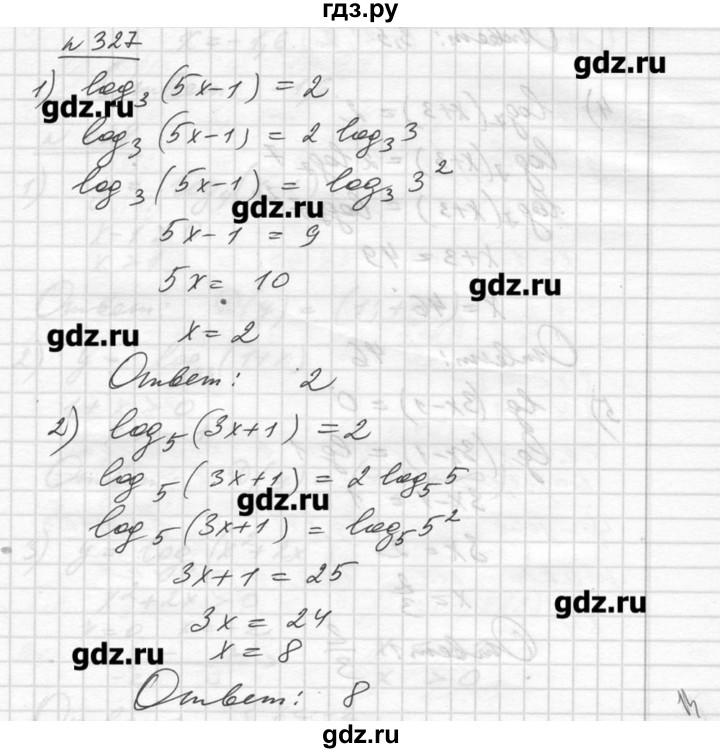 гдз.ру
н 327
gdz.ru
1) log₃(5x-1) = 2
gdz.ru
log₃(5x-1) = 2 log₃3
log₃(5x-1) = log₃3²
gdz.ru
5x-1 = 9
5x = 10
gdz.ru
gdz.ru
x = 2
Ответ: 2
2) log₅(3x+1) = 2
log₅(3x+1) = 2 log₅5
gdz.ru
log₅(3x+1) = log₅5²
3x+1 = 25
gdz.ru
3x = 24
gdz.ru
x = 8
Ответ: 8
gdz.ru